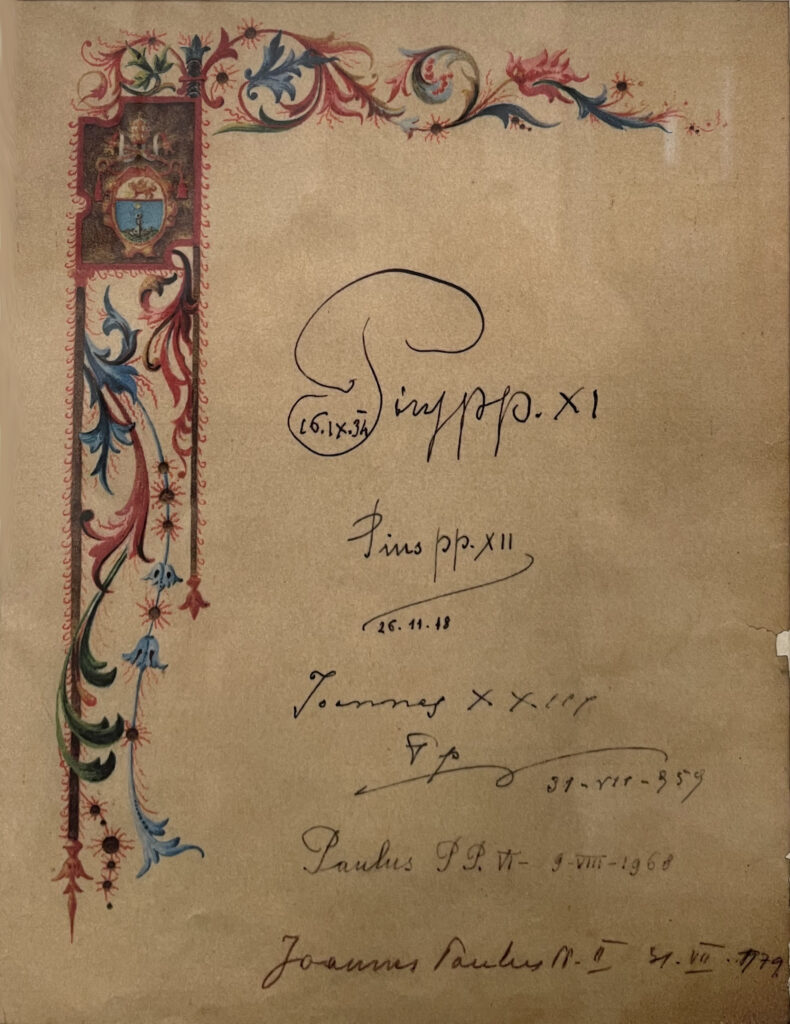 Pius pp. XI
16.IX.34
Pius pp. XII
26.11.48
Joannes XXIII
pp
31-VII-959
Paulus PP. VI -
Joannes Paulus PP. II 31.VII.1979